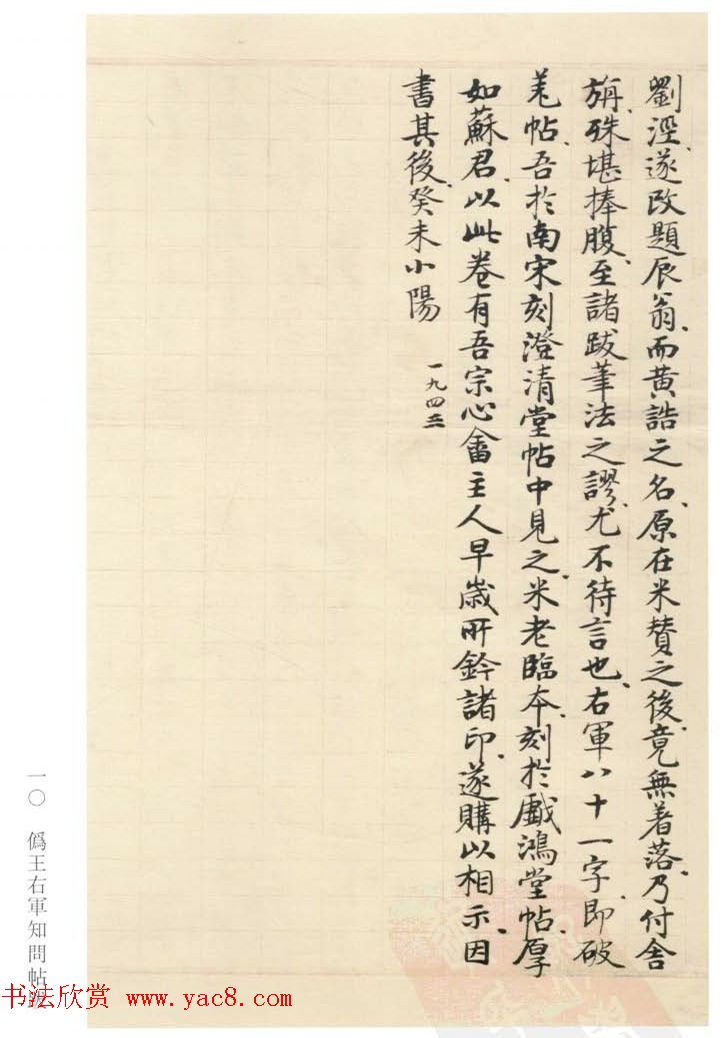 劉涇、遂改題辰翁、而黃誥之名、原在米贊之後、竟無着落、乃付舍
旃、殊堪捧腹、至諸跋筆法之謬、尤不待言也、右軍八十一字、即破
羌帖、吾於南宋刻澄清堂帖中見之、米老臨本、刻於戲鴻堂帖、厚
如蘇君、以此卷有吾宗心畬主人早歲所鈐諸印、遂購以相示、因
書其後、癸未小陽
一九四三
一〇 僞王右軍知問帖跋
书法欣赏 www.yac8.com